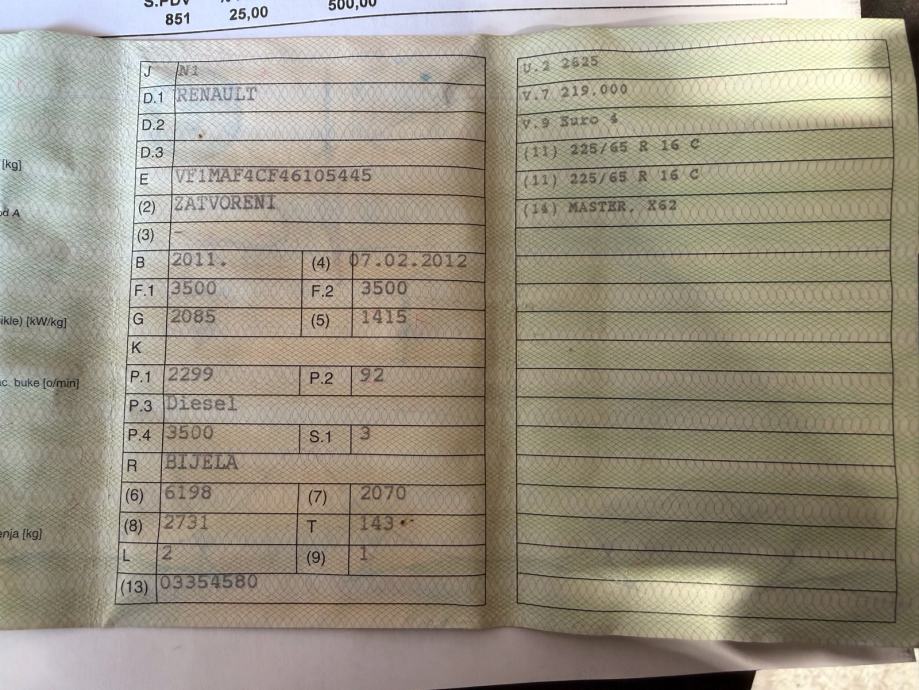 S.PDV
851 25,00 500,00
[kg]
od A
ikle) [kW/kg]
c. buke [o/min]
enja [kg]
J N1
D.1 RENAULT
D.2
D.3
E VF1MAF4CF46105445
(2) ZATVORENI
(3) -
B 2011. (4) 07.02.2012
F.1 3500 F.2 3500
G 2085 (5) 1415
K
P.1 2299 P.2 92
P.3 Diesel
P.4 3500 S.1 3
R BIJELA
(6) 6198 (7) 2070
(8) 2731 T 143
L 2 (9) 1
(13) 03354580
U.2 2625
V.7 219.000
V.9 Euro 4
(11) 225/65 R 16 C
(11) 225/65 R 16 C
(14) MASTER, X62